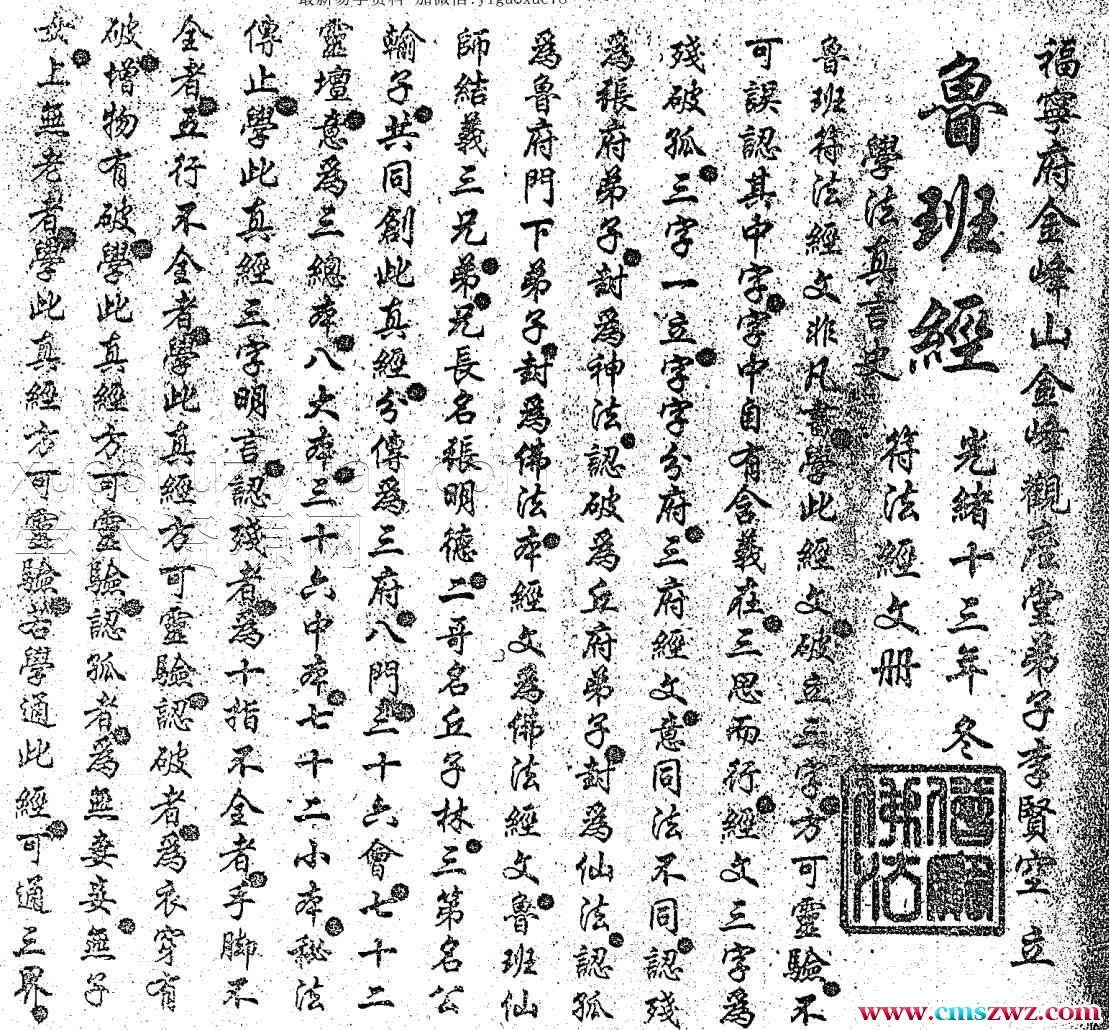 最新易学资料 加微信:yigaoxue78
福寧府金峰山金峰觀座堂弟子李賢空 立
魯班經
光緒十三年 冬
學法真言史
符法經文冊
魯班符法經文非凡書學此經文破立三字方可靈驗不
可誤認其中字字中自有含義在三思而行經文三字為
殘破孤三字一立字字分府三府經文意同法不同認殘
為張府弟子封為神法認破為丘府弟子封為仙法認孤
為魯府門下弟子封為佛法本經文為佛法經文魯班仙
師結義三兄弟兄長名張明德二哥名丘子林三第名公
輸子共同創此真經分傳為三府八門三十六會七十二
靈壇意為三總本八大本三十六中本七十二小本秘法
傳止學此真經三字明言認殘者為十指不全者手腳不
全者五行不全者學此真經方可靈驗認破者為衣穿有
破增物有破學此真經方可靈驗認孤者為無妾妾無子
女上無老者學此真經方可靈驗若學通此經可通三界
佛法
www.cmszwz.com